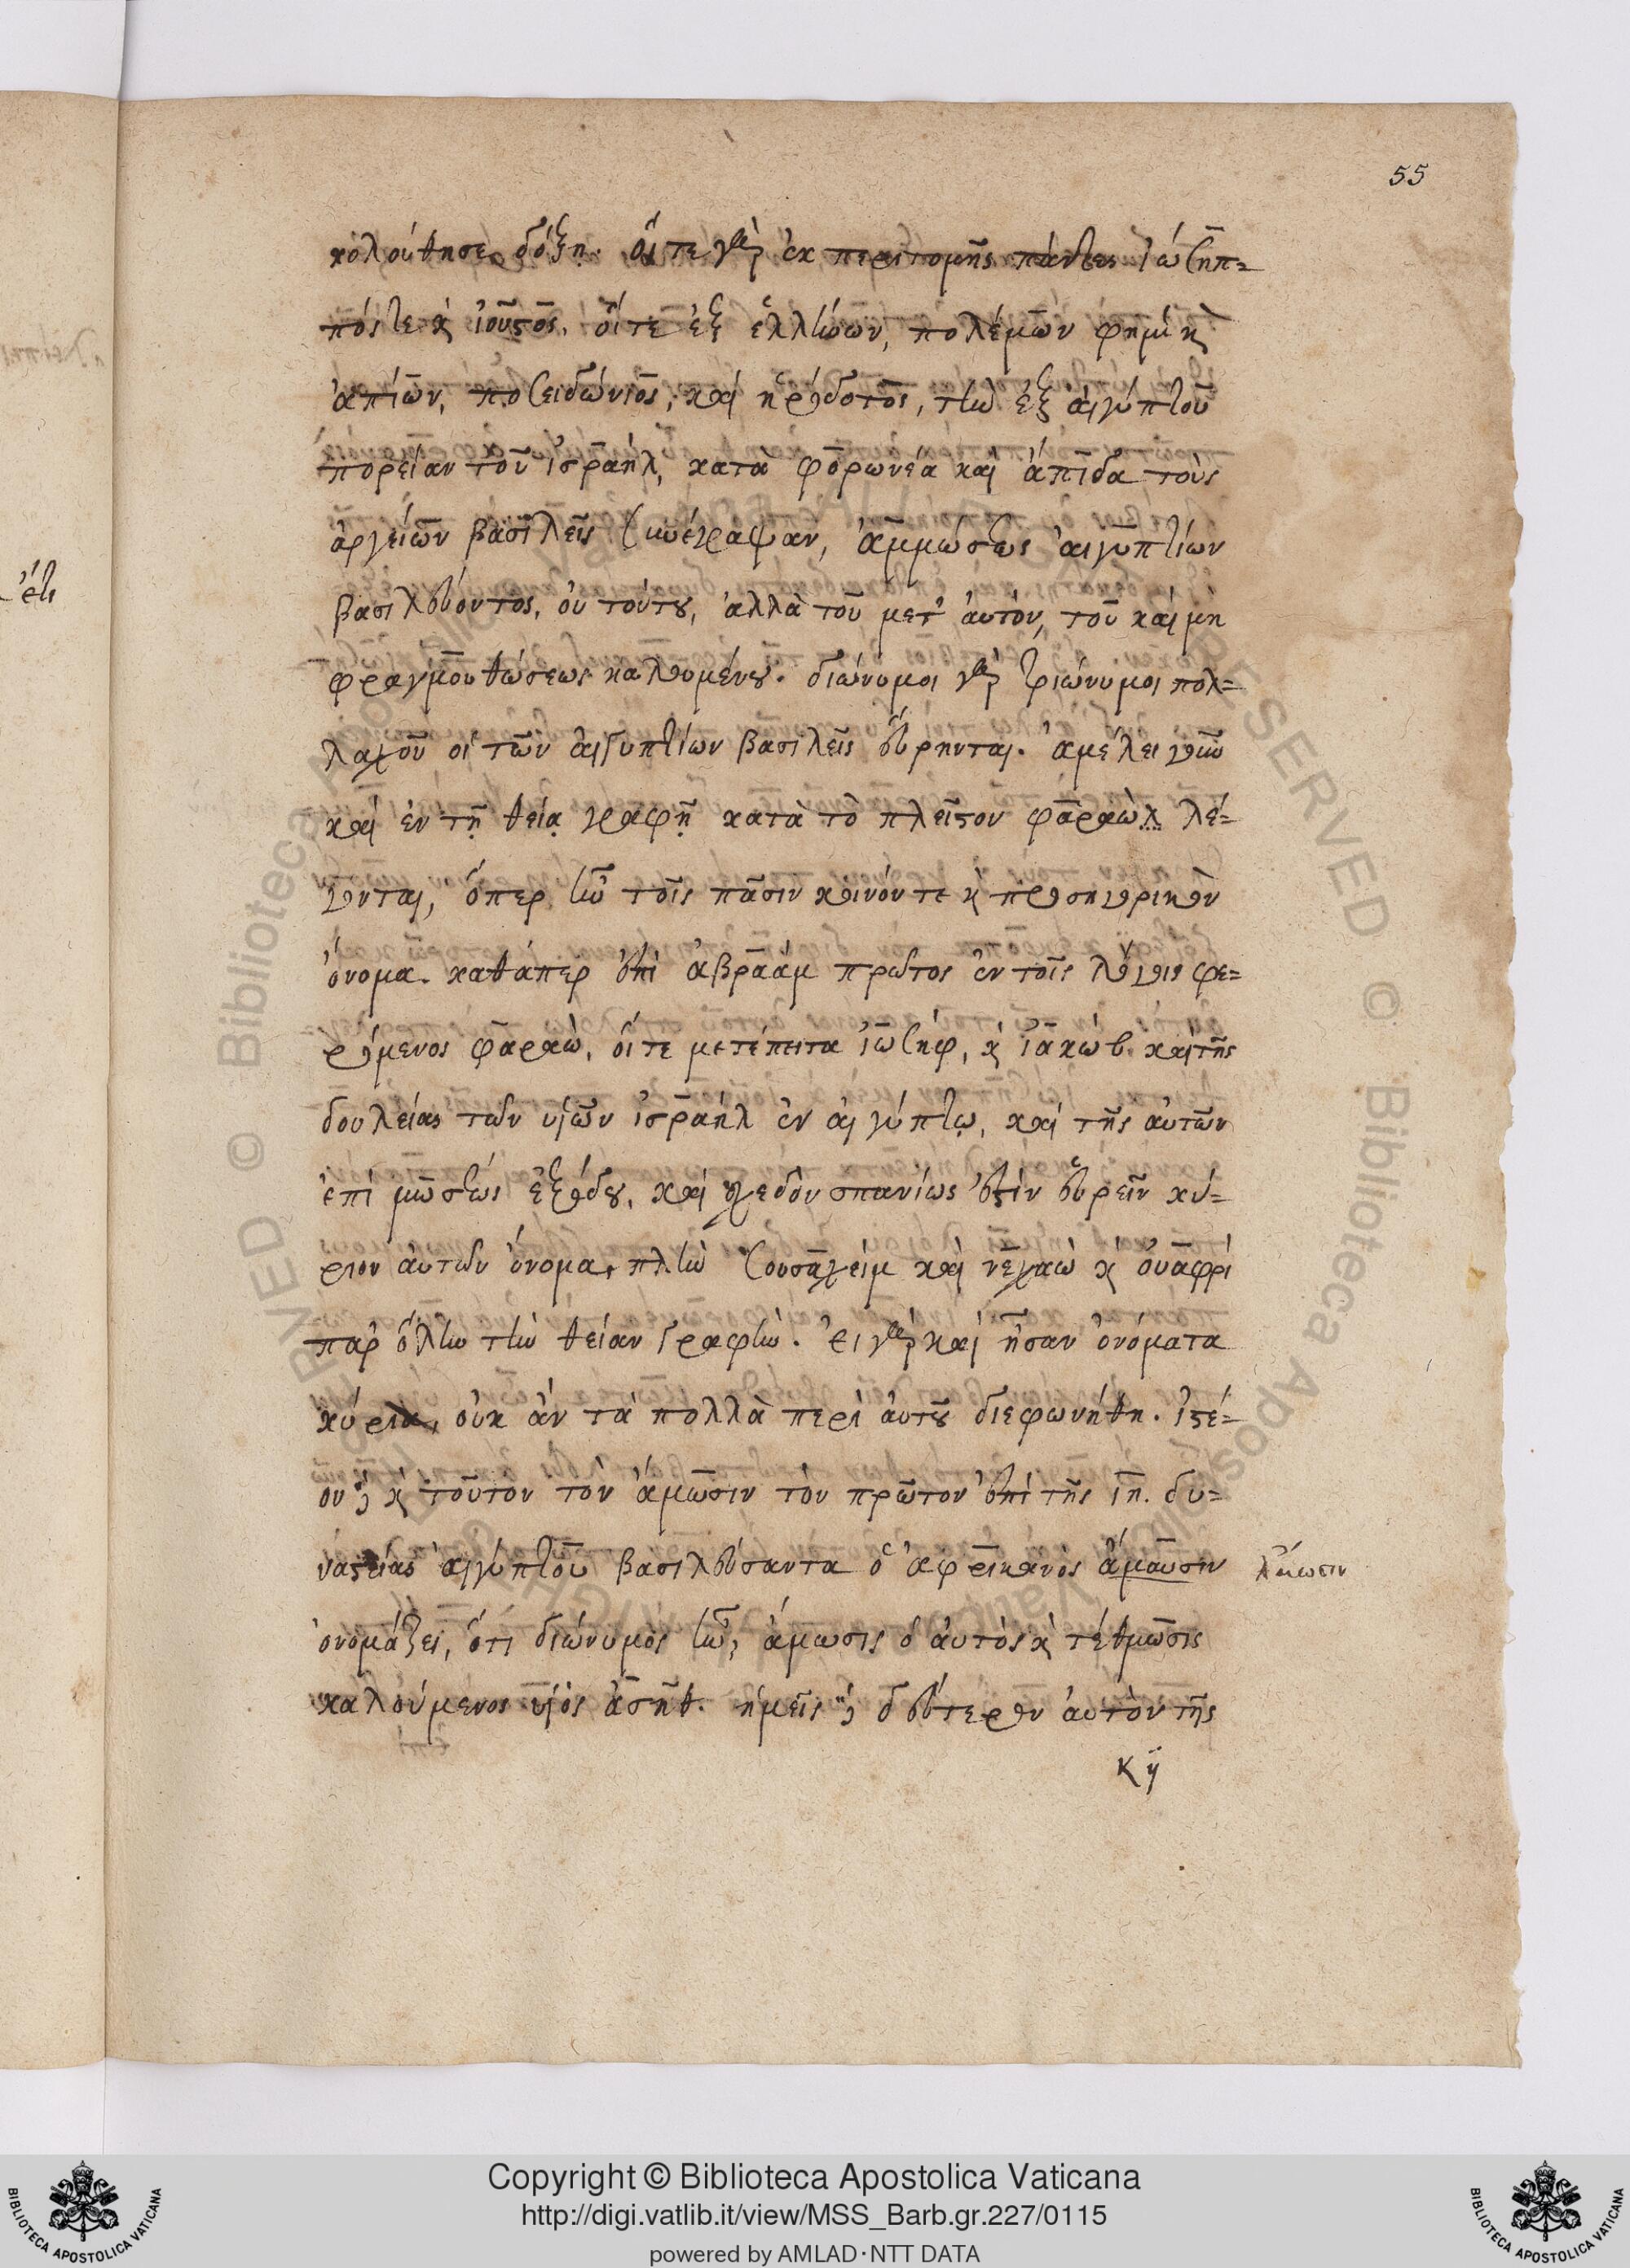 55
κολούθησε δόξῃ. οἵ τε γὰρ ἐκ περιτομῆς πάντες ἰώσηπ=
πός τε κ̀ ἰοῦστος. οἵ τε ἐξ ἑλλήνων, πολέμων φημὶ κ̀
ἀπίων, ποσειδώνιος, καὶ ἡρόδοτος, τὴν ἐξ αἰγύπτου
πορείαν τοῦ ἰσραήλ, κατὰ φορωνέα καὶ ἄπιδα τοὺς
ἀργείων βασιλεῖς συνέγραψαν, ἀμμώσεως αἰγυπτίων
βασιλεύοντος, οὐ τούτου, ἀλλὰ τοῦ μετ' αὐτόν, τοῦ καὶ μη
φραγμουθώσεως καλουμένου. διώνυμοι γὰρ τριώνυμοι πολ=
λαχοῦ οἱ τῶν αἰγυπτίων βασιλεῖς εὕρηνται. ἀμέλει γοῦν
καὶ ἐν τῇ θείᾳ γραφῇ κατὰ τὸ πλεῖστον φαραὼλ λέ=
γονται, ὅπερ ἦν τοῖς πᾶσιν κοινόν τε κ̀ προσηγορικὸν
ὄνομα. καθάπερ ἐπὶ ἀβραάμ πρῶτος ἐν τοῖς λόγοις φε=
ρόμενος φαραὼ, οἵ τε μετέπειτα ἰωσήφ, κ̀ ἰακώβ. καὶ τῆς
δουλείας τῶν υἱῶν ἰσραήλ ἐν αἰγύπτῳ, καὶ τῆς αὐτῶν
ἐπὶ μωσέως ἐξόδου, καὶ σχεδὸν σπανίως ἐστὶν εὑρεῖν κύ=
ριον αὐτῶν ὄνομα, πλὴν σουσαχείμ καὶ νεχαὼ κ̀ οὐαφρὶ
παρ' ὅλην τὴν θείαν γραφήν. εἰ γὰρ καὶ ἦσαν ὀνόματα
κύρια, οὐκ ἂν τὰ πολλὰ περὶ αὐτοῦ διεφωνήθη. ἰστέ=
ον δὲ κ̀ τοῦτον τὸν ἄμωσιν τὸν πρῶτον ἐπὶ τῆς ιη. δυ=
ναστείας αἰγύπτου βασιλεύσαντα ὁ ἀφρικανὸς ἄμωσιν
ὀνομάζει, ὅτι διώνυμος ἦν, ἄμωσις ὁ αὐτὸς κ̀ τέθμωσις
καλούμενος υἱὸς ἀσήθ. ἡμεῖς δὲ δεύτερον αὐτὸν τῆς
κη
έτι
Copyright © Biblioteca Apostolica Vaticana
http://digi.vatlib.it/view/MSS_Barb.gr.227/0115
powered by AMLAD·NTT DATA
BIBLIOTECA APOSTOLICA VATICANA
BIBLIOTECA APOSTOLICA VATICANA